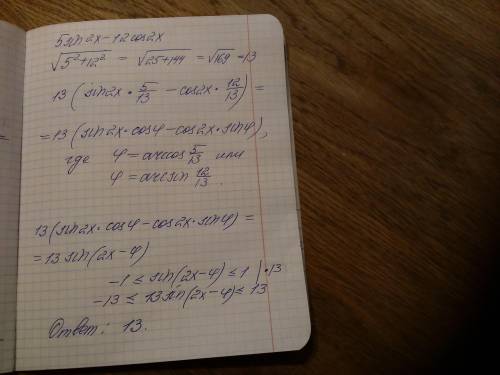 5sin2x-12cos2x
√5²+12² = √25+144 = √169 = 13
13(sin2x·5/13 - cos2x·12/13) =
=13(sin2x·cosφ-cos2x·sinφ),
где φ=arccos 5/13 или
φ=arcsin 12/13.
13(sin2x·cosφ-cos2x·sinφ)=
=13sin(2x-φ)
-1 ≤ sin(2x-φ) ≤ 1 |·13
-13 ≤ 13sin(2x-φ) ≤ 13
Ответ: 13.